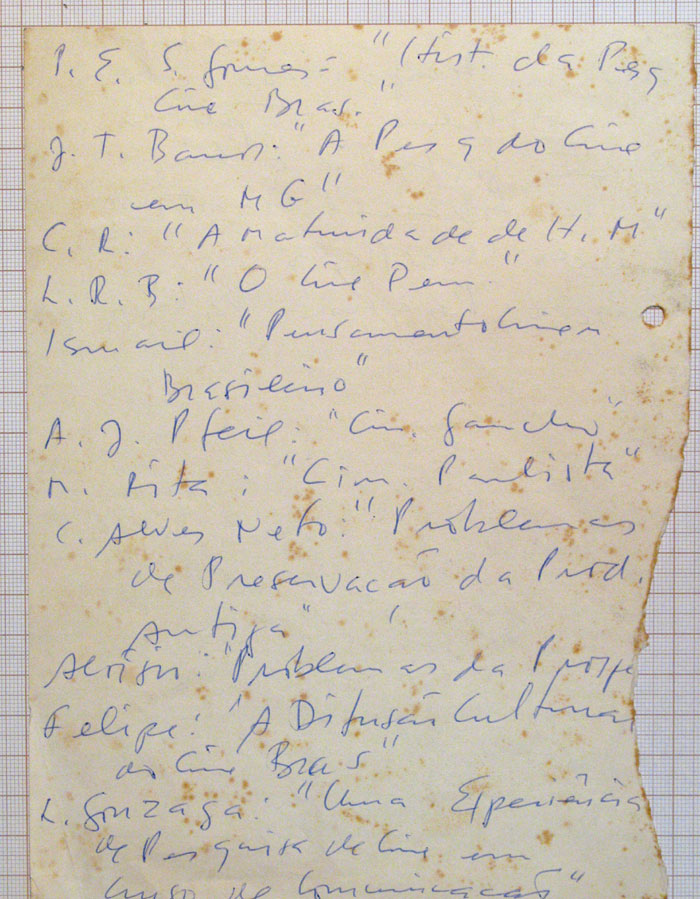 P. E. S. Gomes: "Hist. da Pesq
Cine Bras."
J. T. "A Pesq do Cine
em MG"
C. R: "A Maturidade de H. M"
L. R. B: "O Cine Pern."
Ismail: "Pensamento Cinem
Brasileiro"
A. J. Pfeil: "Cin. Gaucho"
M. Rita: "Cin. Paulista"
C. Alves Neto: "Problemas
de Preservação da Prod.
Antiga"
"Problemas da
Felipe: "A Difusão Cultural
do Cine Bras"
L. Gonzaga: "Uma Experiência
de Pesquisa de Cine em
Curso de Comunicação"